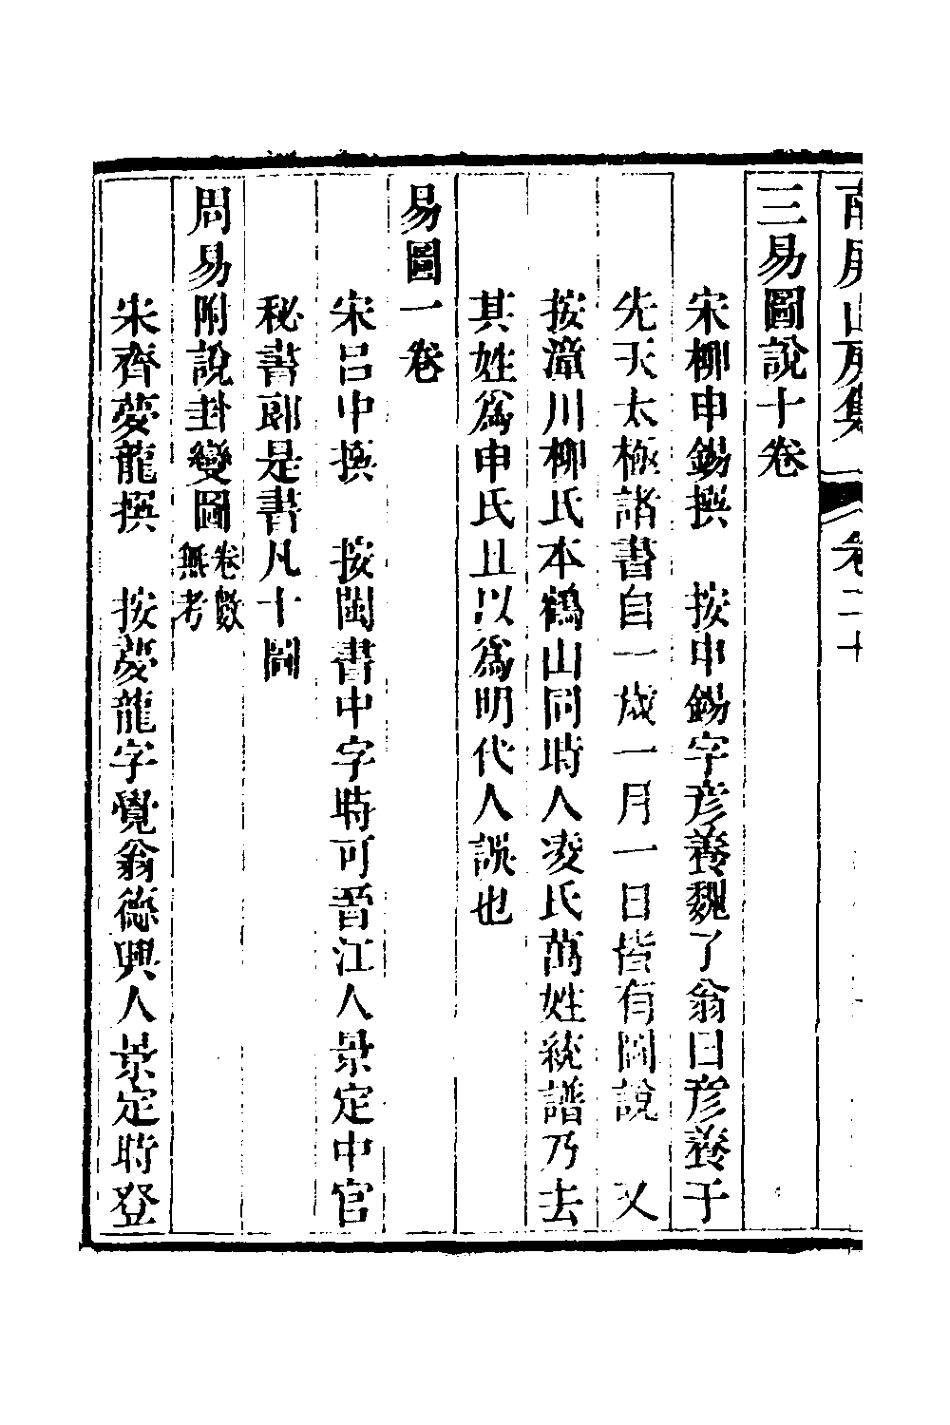 南屏山房集 卷二十
三易圖說十卷
宋柳申錫撰　按申錫字彦養魏了翁曰彦養于
先天太極諸書自一歲一月一日皆有圖說　又
按漳川柳氏本鶴山同時人凌氏萬姓統譜乃去
其姓爲申氏且以爲明代人誤也
易圖一卷
宋呂中撰　按閩書中字時可晋江人景定中官
秘書郎是書凡十圖
周易附說卦變圖卷數無考
宋齊夢龍撰　按夢龍字覺翁德興人景定時登